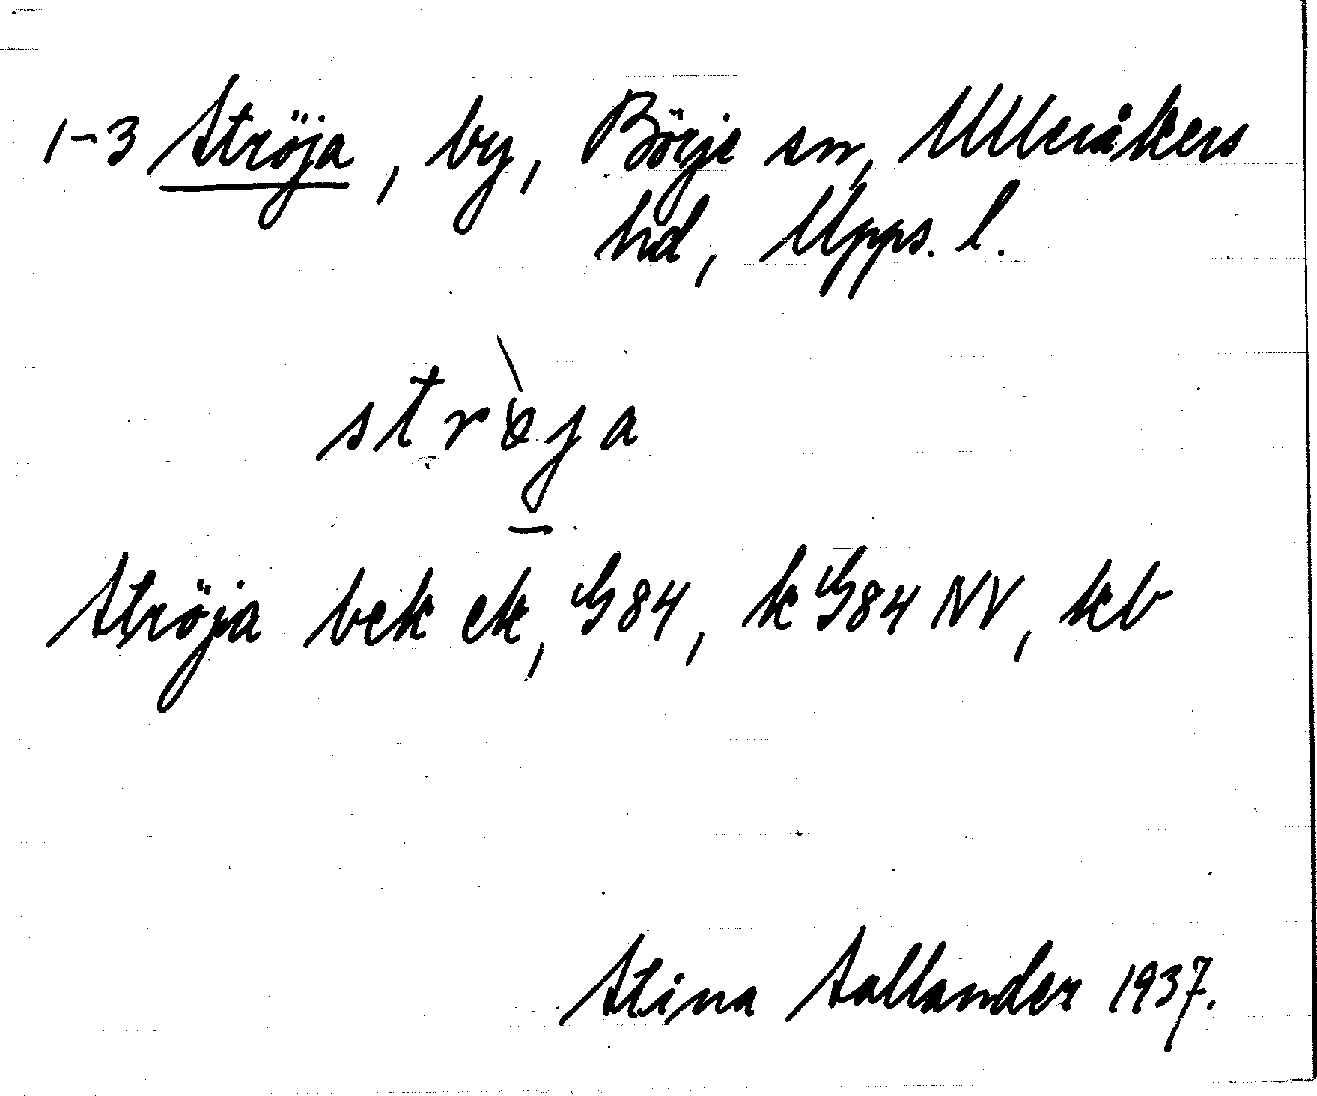 1-3 Ströja, by, Börje sn, Ulleråkers
hd, Upps. l.
strø̀ja
Ströja bek ek, G84, k G84 NV, kb
Stina Sallander 1937.